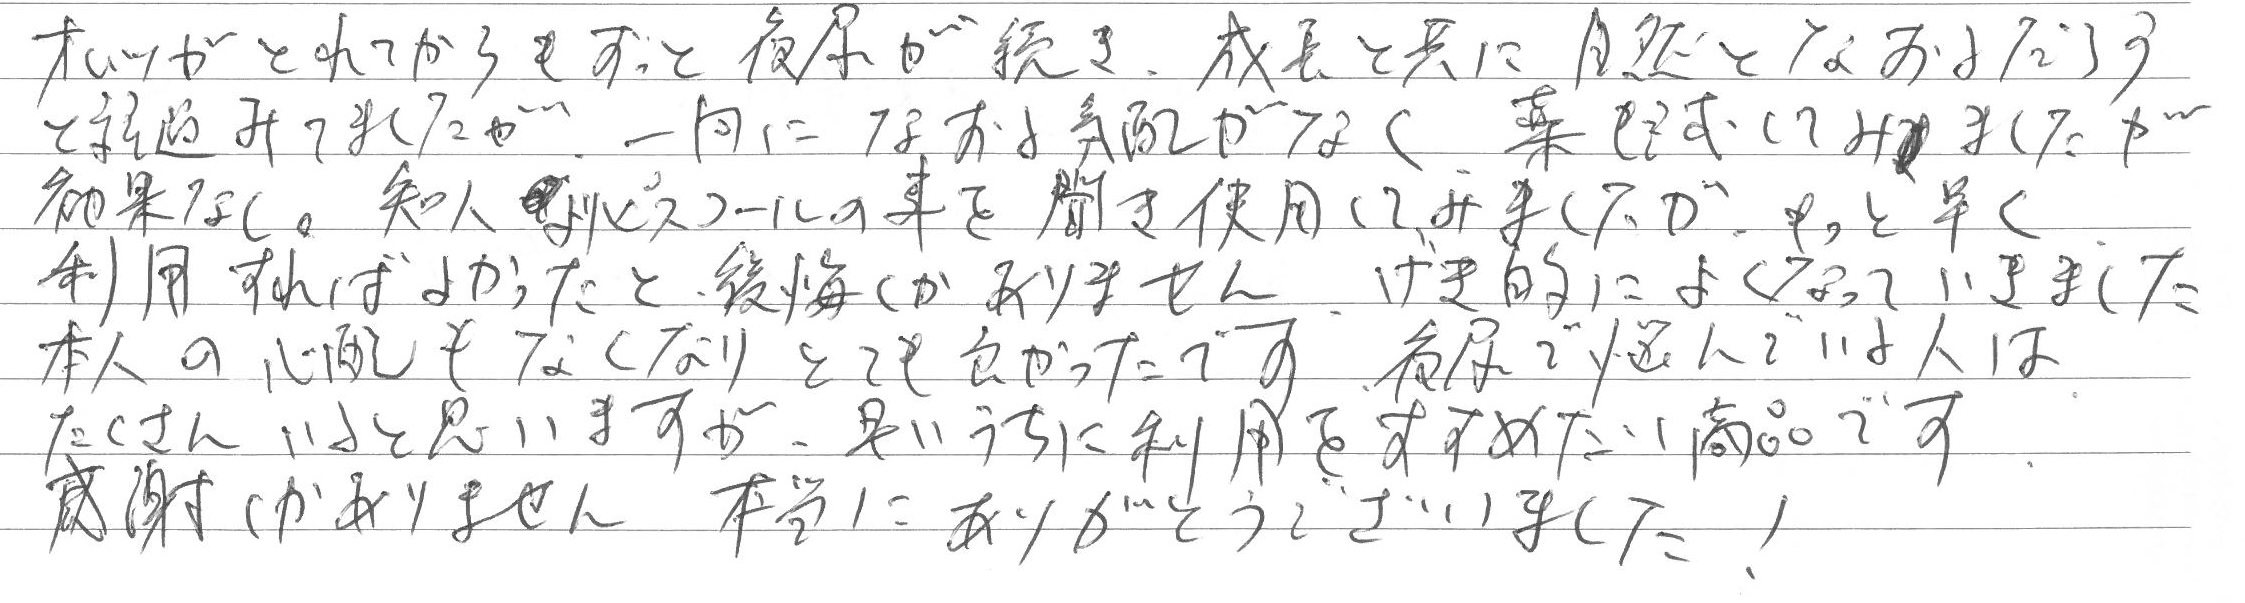 オムツがとれてからもずっと夜尿が続き、成長と共に自然となおるだろう
と経過みてましたが、一向になおる気配がなく 薬も試してみましたが
効果なし。知人よりピスコールの事を聞き使用してみましたが、もっと早く
利用すればよかったと、後悔しかありません、げき的によくなっていきました
本人の心配もなくなりとても良かったです、夜尿で悩んでいる人は
たくさんいると思いますが、早いうちに利用をすすめたい商品です、
感謝しかありません 本当にありがとうございました!